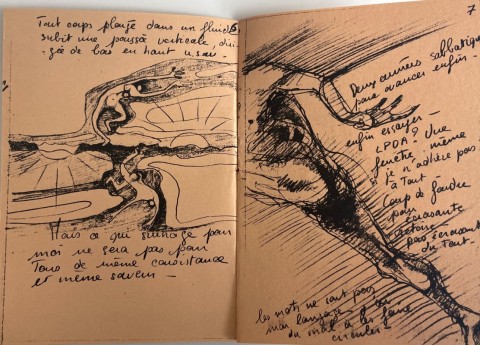 Tout corps plongé dans un fluide
subit une poussée verticale, diri-
gée de bas en haut u.s.w.
Mais ce qui surnage pour
moi ne sera pas pour
Tous de même consistance
et même saveur –
7
Deux années sabbatiques
pour avancer enfin –
enfin essayer –
LPDA? Une
fenêtre même
si je n'adhère pas
à Tout
Coup de foudre
pour
écrasante
pas écrasant
du Tout.
les mots ne sont pas
mon langage
du mal à les faire
circuler –